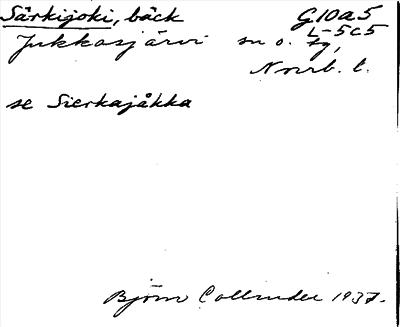 Särkijoki, bäck G10a5
L-5c5
Jukkasjärvi sn o. tg,
Norrb. l.
se Sierkajåkka
Björn Collinder 1937.